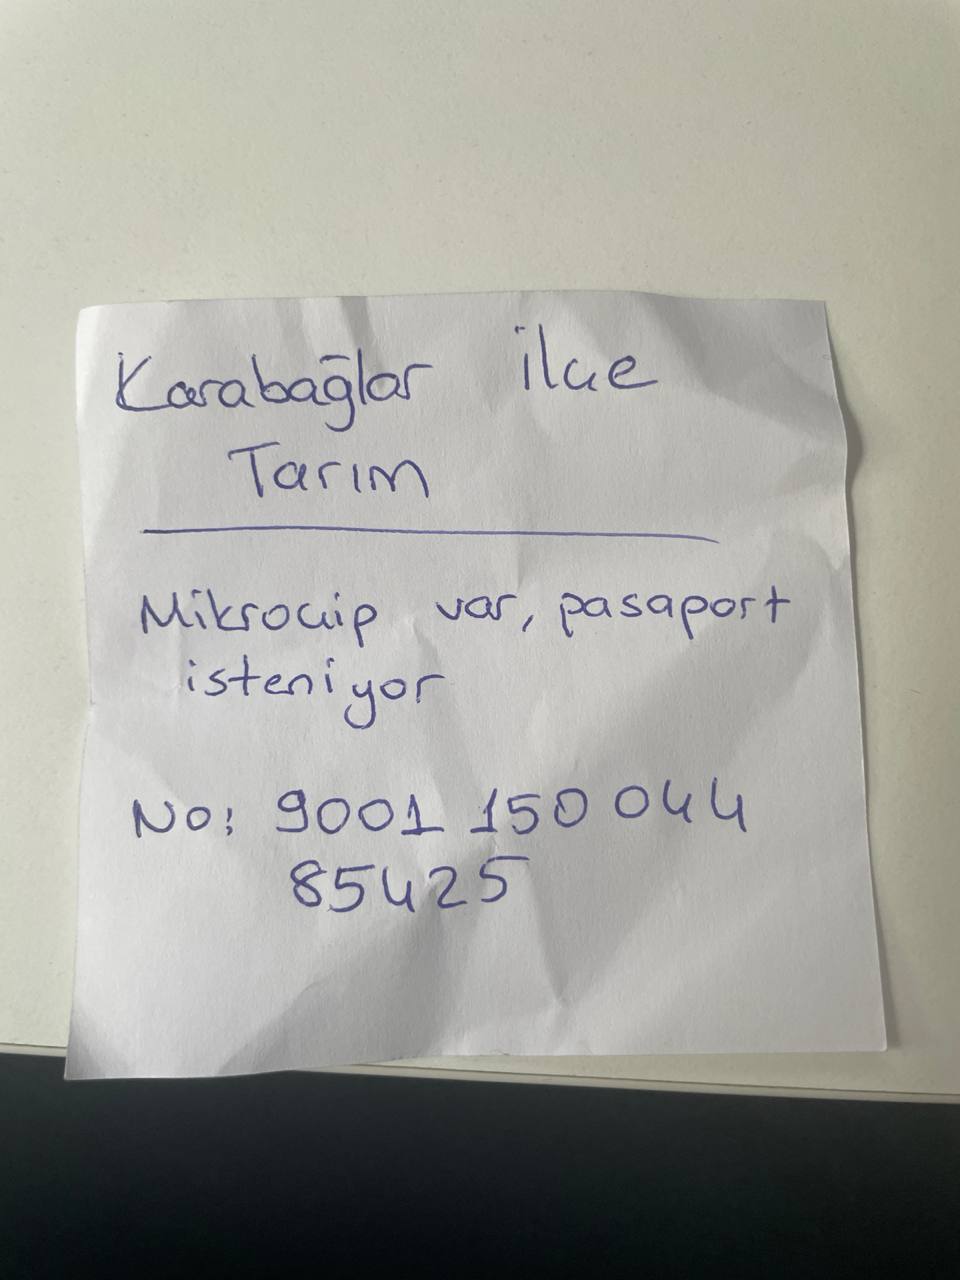 Karabağlar ilçe
Tarım
Mikroçip var, pasaport
isteniyor
No: 9001 150 044
85425